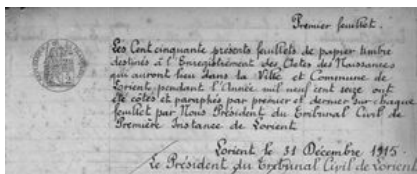 Premier feuillet.
Les Cent cinquante présents feuillets de papier timbré
destinés à l'Enregistrement des Actes des Naissances
qui auront lieu dans la Ville et Commune de
Lorient, pendant l'Année mil neuf cent seize ont
été côtés et paraphés par premier et dernier sur chaque
feuillet par Nous Président du Tribunal Civil de
Première Instance de Lorient
Lorient le 31 Décembre 1915.
Le Président du Tribunal Civil de Lorient